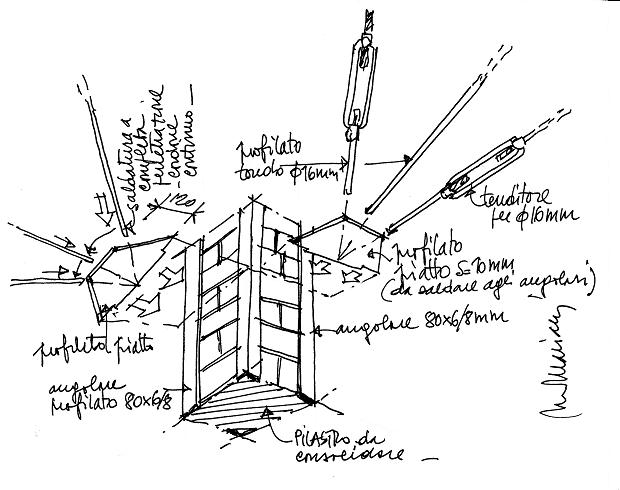 saldatura a
completa
penetrazione
cordone
continuo —
120
profilato
tondo ϕ16mm
tenditore
per ϕ16mm
profilato
piatto S=10mm
(da saldare agli angolari)
angolare 80x6/8mm
profilato piatto
angolare
profilato 80x6/8
PILASTRO da
consolidare —